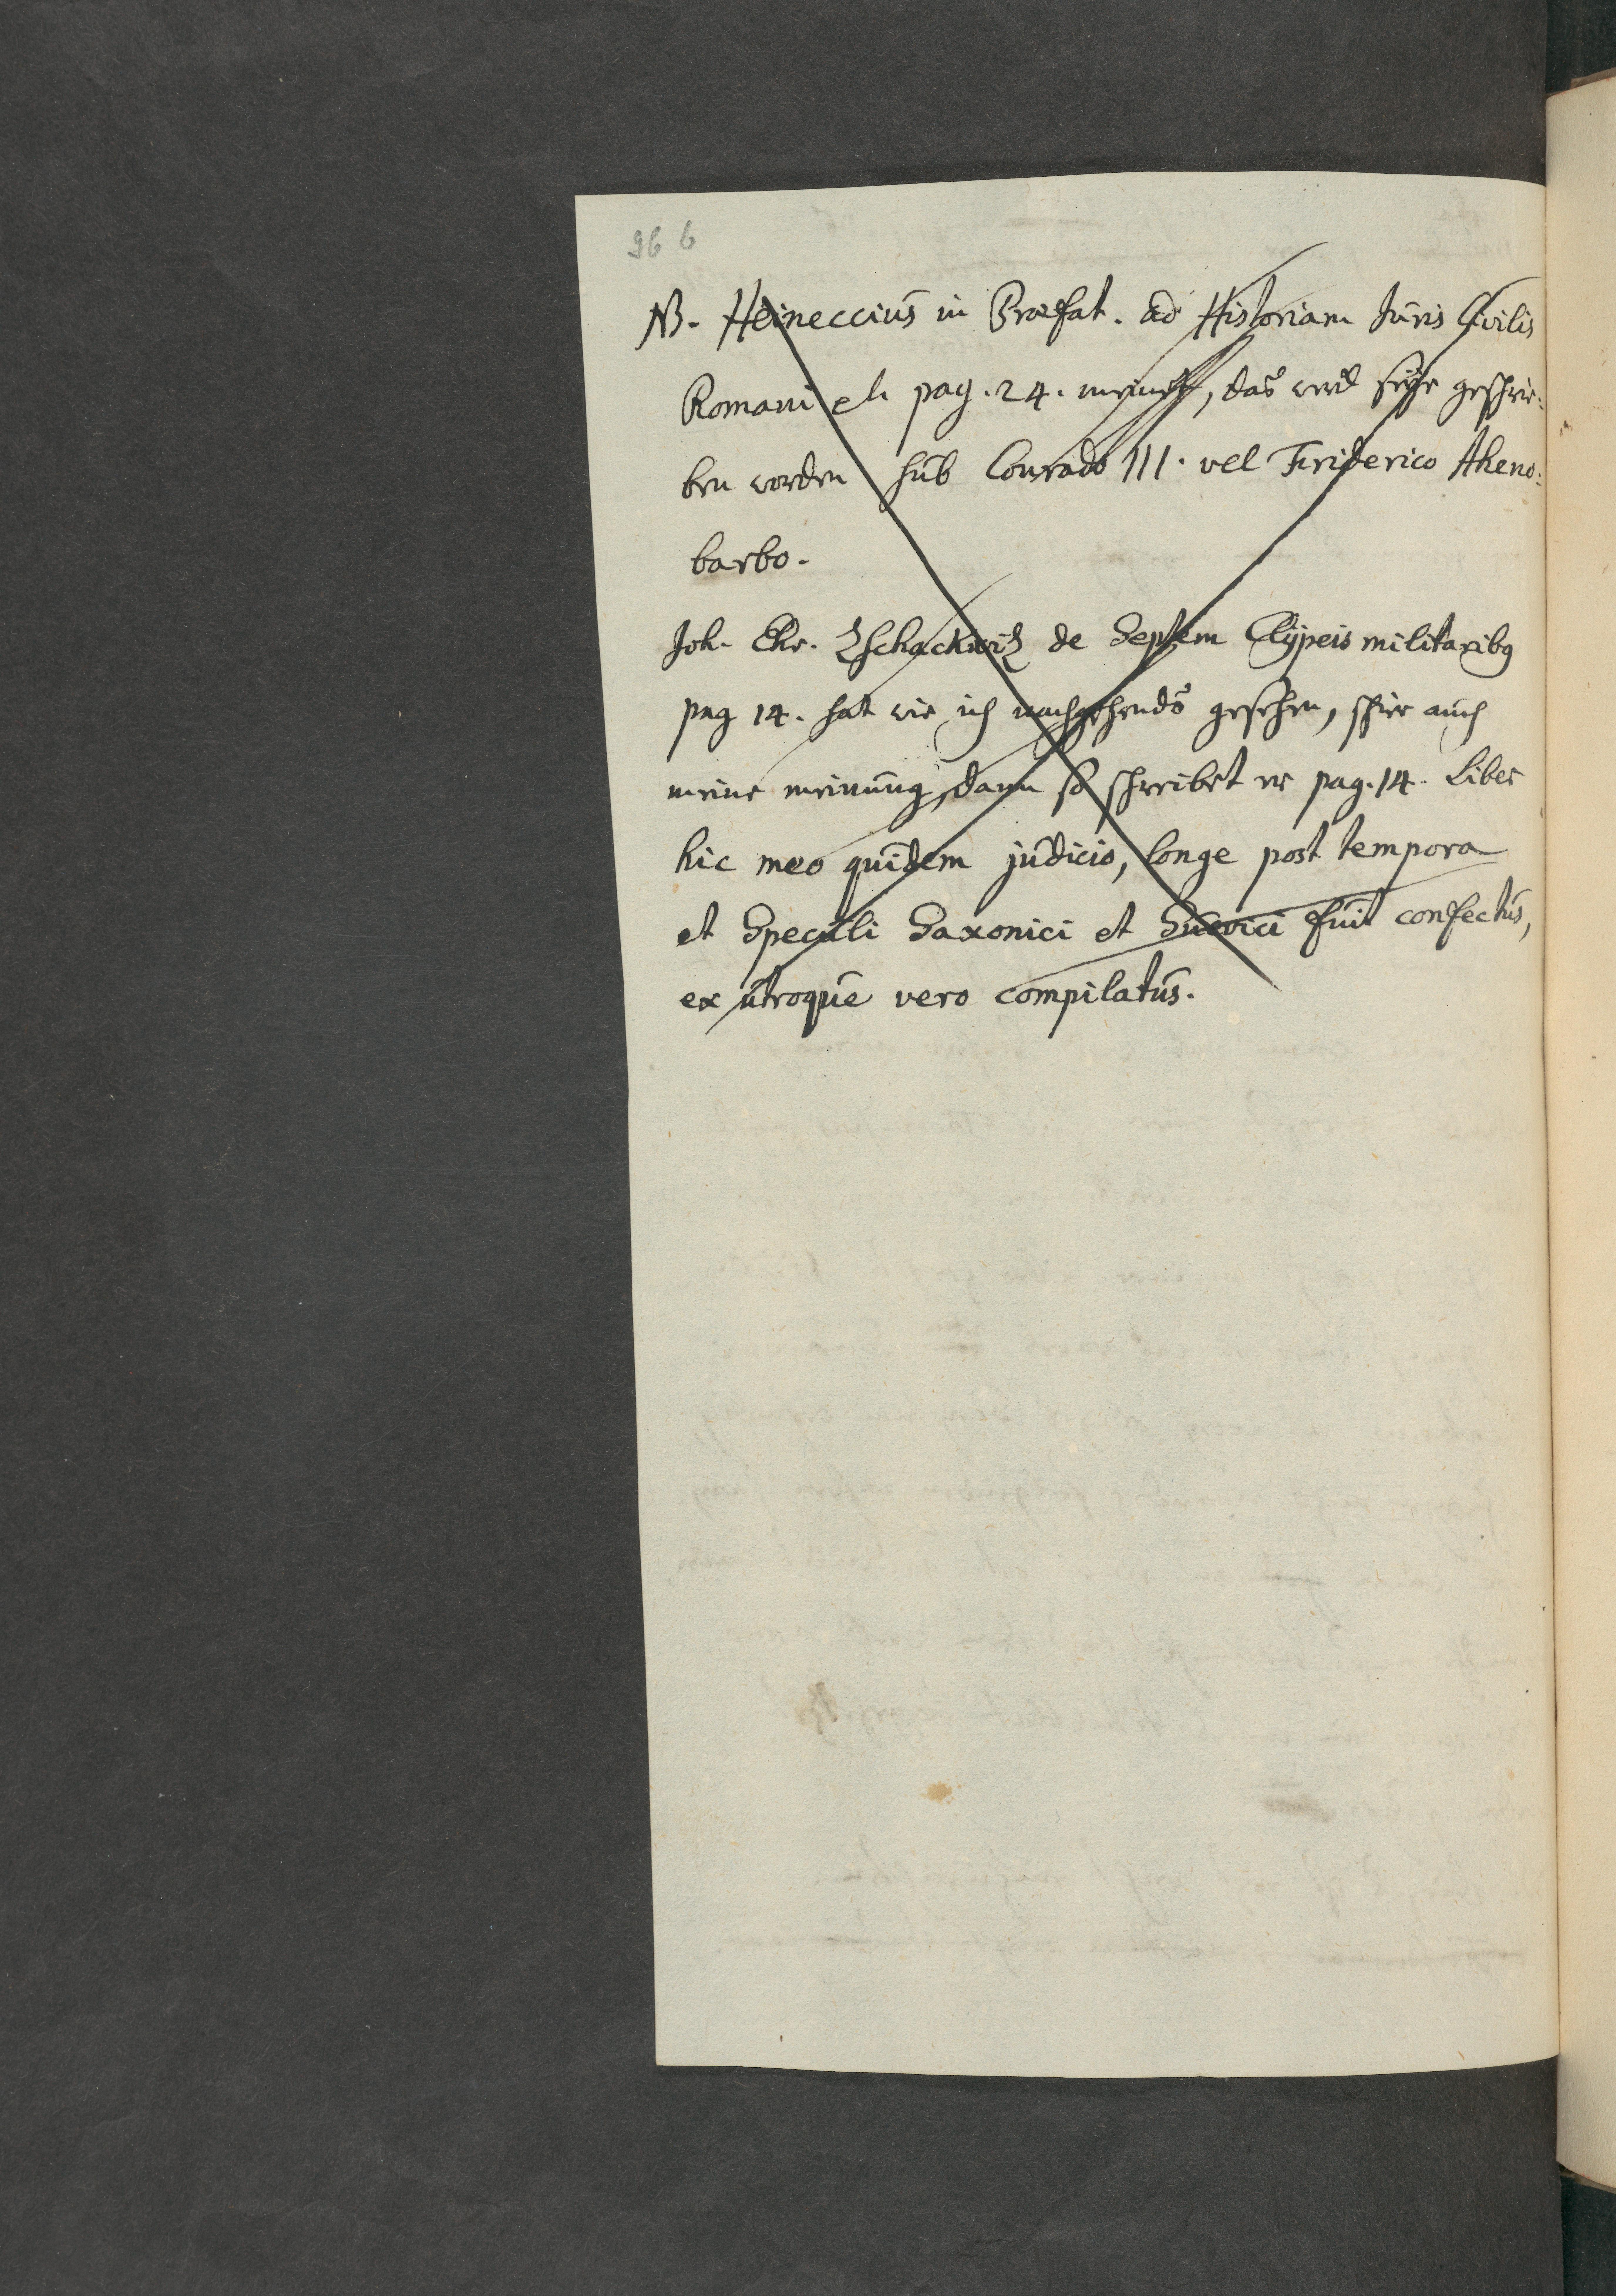 96 b
NB. Heineccius in Praefat. ad Historiam Juris Civilis
Romani pag. 24. meinet, das werd seÿe geschrie-
ben worden sub Conrado III. vel Friderico Aheno-
barbo.
Joh. Ehr. Zschackwiz de Septem Clÿpeis militaribus
pag 14. hat wie ich nachgehends gesehen, schier auch
meine meinung, dann so schreibet er pag. 14. Liber
hic meo quidem judicio, longe post tempora
et Speculi Saxonici et Suevici fuit confectus,
ex utroque vero compilatus.